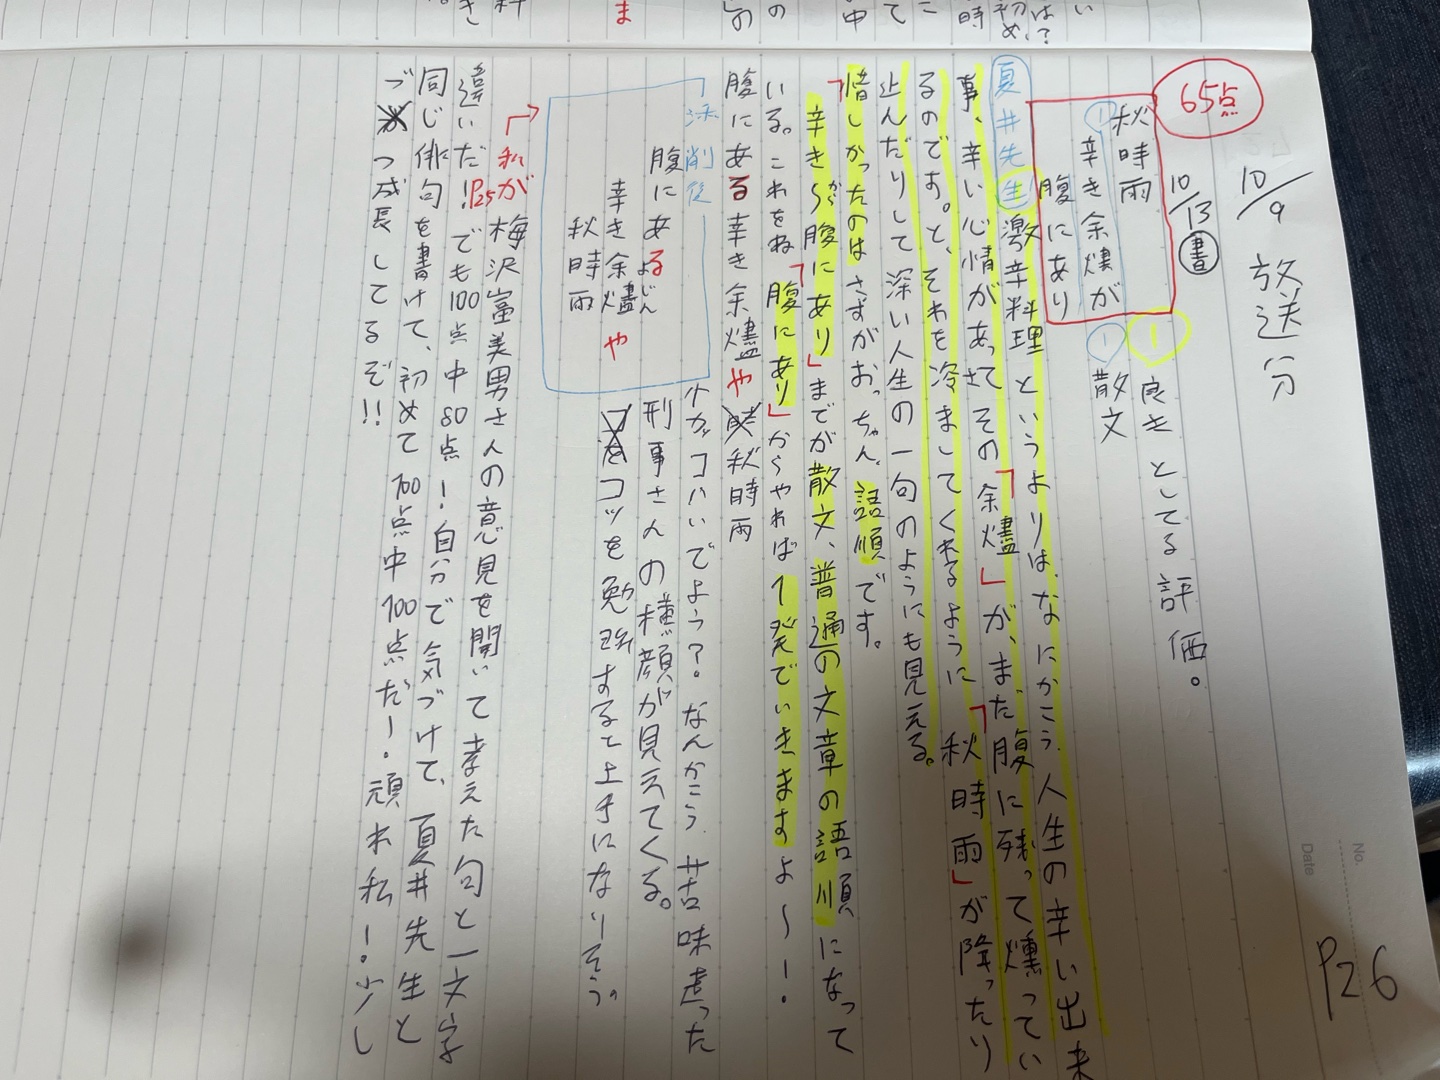 P26
No.
Date
10/9 放送分
10/13 書
65点
① 良きとしてる評価。
秋時雨
① 辛き余燼が
腹にあり
① 散文
夏井先生 激辛料理というよりは、なにかこう人生の辛い出来
事、辛い心情があってさ その「余燼」が、まだ腹に残って燻ってい
るのです。と、それを冷ましてくれるように「秋時雨」が降ったり
止んだりして深い人生の一句のようにも見える。
惜しかったのはさすがおっちゃん、語順です。
「辛き〜が腹にあり」までが散文、普通の文章の語順になって
いる。これをね「腹にあり」からやれば1発でいきますよ〜!
腹にある辛き余燼や 秋時雨
添削後
腹にある
辛き余燼や
よじん
秋時雨
カッコいいでしょう?なんかこう、苦味走った
刑事さんの横顔が見えてくる。
コツを勉強すると上手になりそう。
私が P25 梅沢富美男さんの意見を聞いて考えた句と一文字
違いだ!でも100点中80点!自分で気づけて、夏井先生と
同じ俳句を書けて、初めて100点中100点だー。頑れ私!少し
づつ成長してるぞ!!